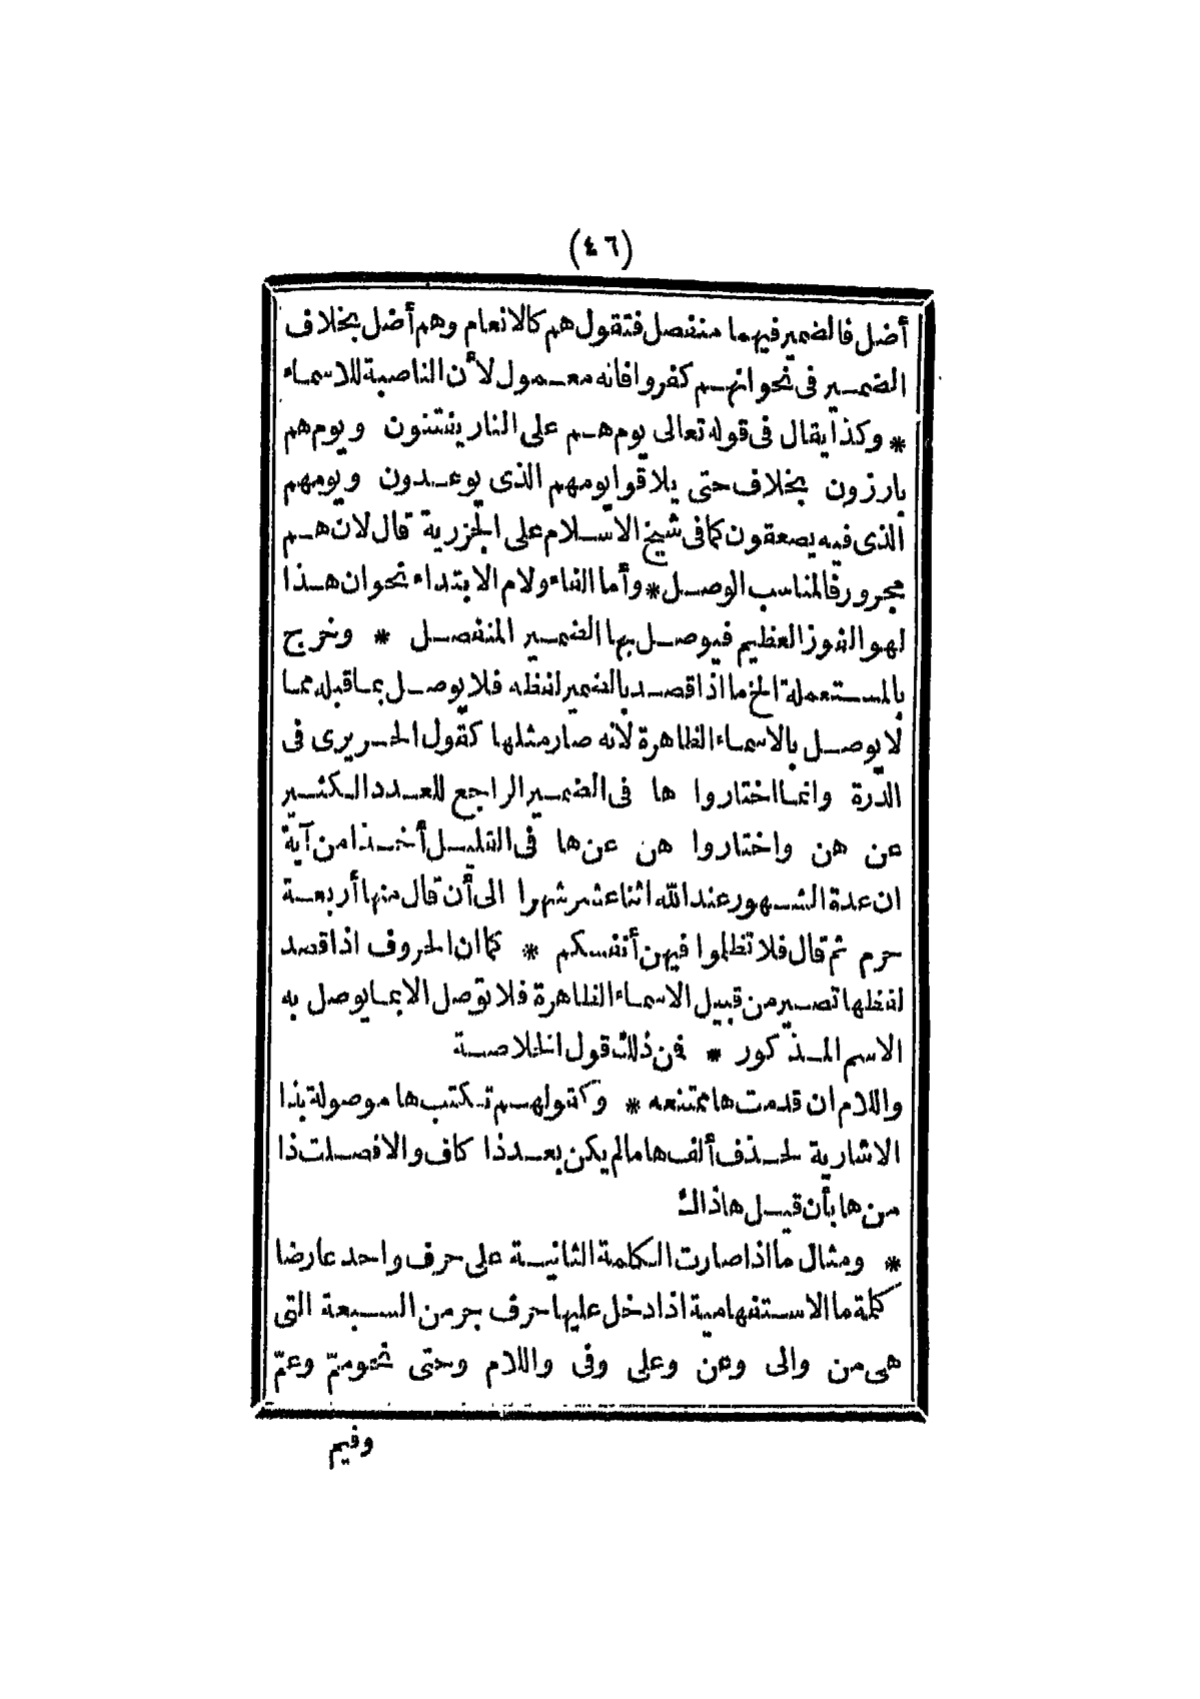 (٤٦)
أضل فالضمير فيهما منفصل فتقول هم كالانعام وهم أضل بخلاف
الضمير فى نحو انهم كفروا فانه معمول لأن الناصبة للاسماء
* وكذا يقال فى قوله تعالى يوم هم على النار يفتنون ويوم هم
بارزون بخلاف حتى يلاقوا يومهم الذى يوعدون ويومهم
الذى فيه يصعقون كما فى شيخ الاسلام على الجزرية قال لان هم
مجرور فالمناسب الوصل * وأما الفاء ولام الابتداء نحو ان هذا
لهو الفوز العظيم فيوصل بها الضمير المنفصل * وخرج
بالمستعملة الخ ما اذا قصد بالضمير لفظه فلا يوصل بما قبله مما
لا يوصل بالاسماء الظاهرة لأنه صار مثلها كقول الحريرى فى
الدرة وانما اختاروا ها فى الضمير الراجع للعدد الكثير
عن هن واختاروا هن عن ها فى القليل أخذا من آية
ان عدة الشهور عند الله اثنا عشر شهرا الى أن قال منها أربعة
حرم ثم قال فلا تظلموا فيهن أنفسكم * كما ان الحروف اذا قصد
لفظها تصير من قبيل الاسماء الظاهرة فلا توصل الا بما يوصل به
الاسم المذكور * فمن ذلك قول الخلاصة
واللام ان قدمت ها ممتنعه * وكقولهم تكتب ها موصولة بذا
الاشارية لحذف ألف ها ما لم يكن بعد ذا كاف والا فصلت ذا
من ها بأن قيل ها ذاك
* ومثال ما اذا صارت الكلمة الثانية على حرف واحد عارضا
كلمة ما الاستفهامية اذا دخل عليها حرف جر من السبعة التى
هى من والى وعن وعلى وفى واللام وحتى نحو ممّ وعمّ
وفيم